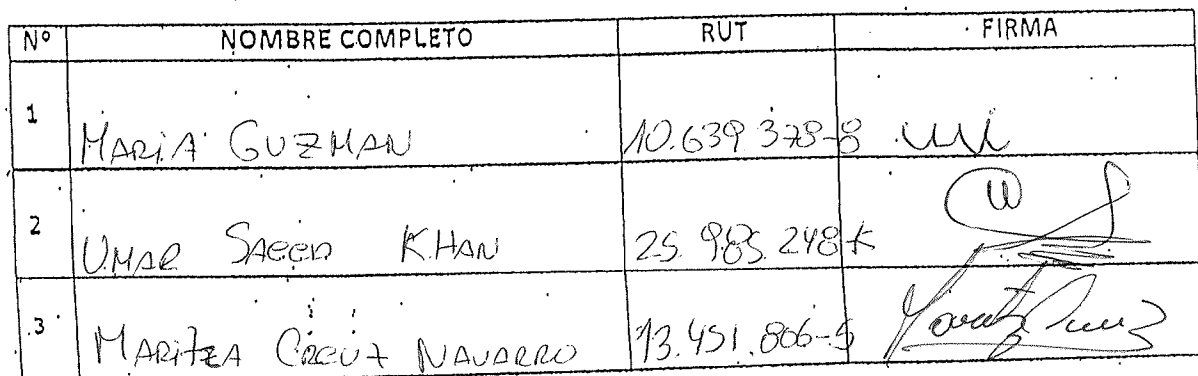 Nº NOMBRE COMPLETO RUT FIRMA
1 MARIA GUZMAN 10.639.378-8
2 UMAR SAEED KHAN 25.985.248-K
3 MARITZA NAVARRO 13.451.806-5